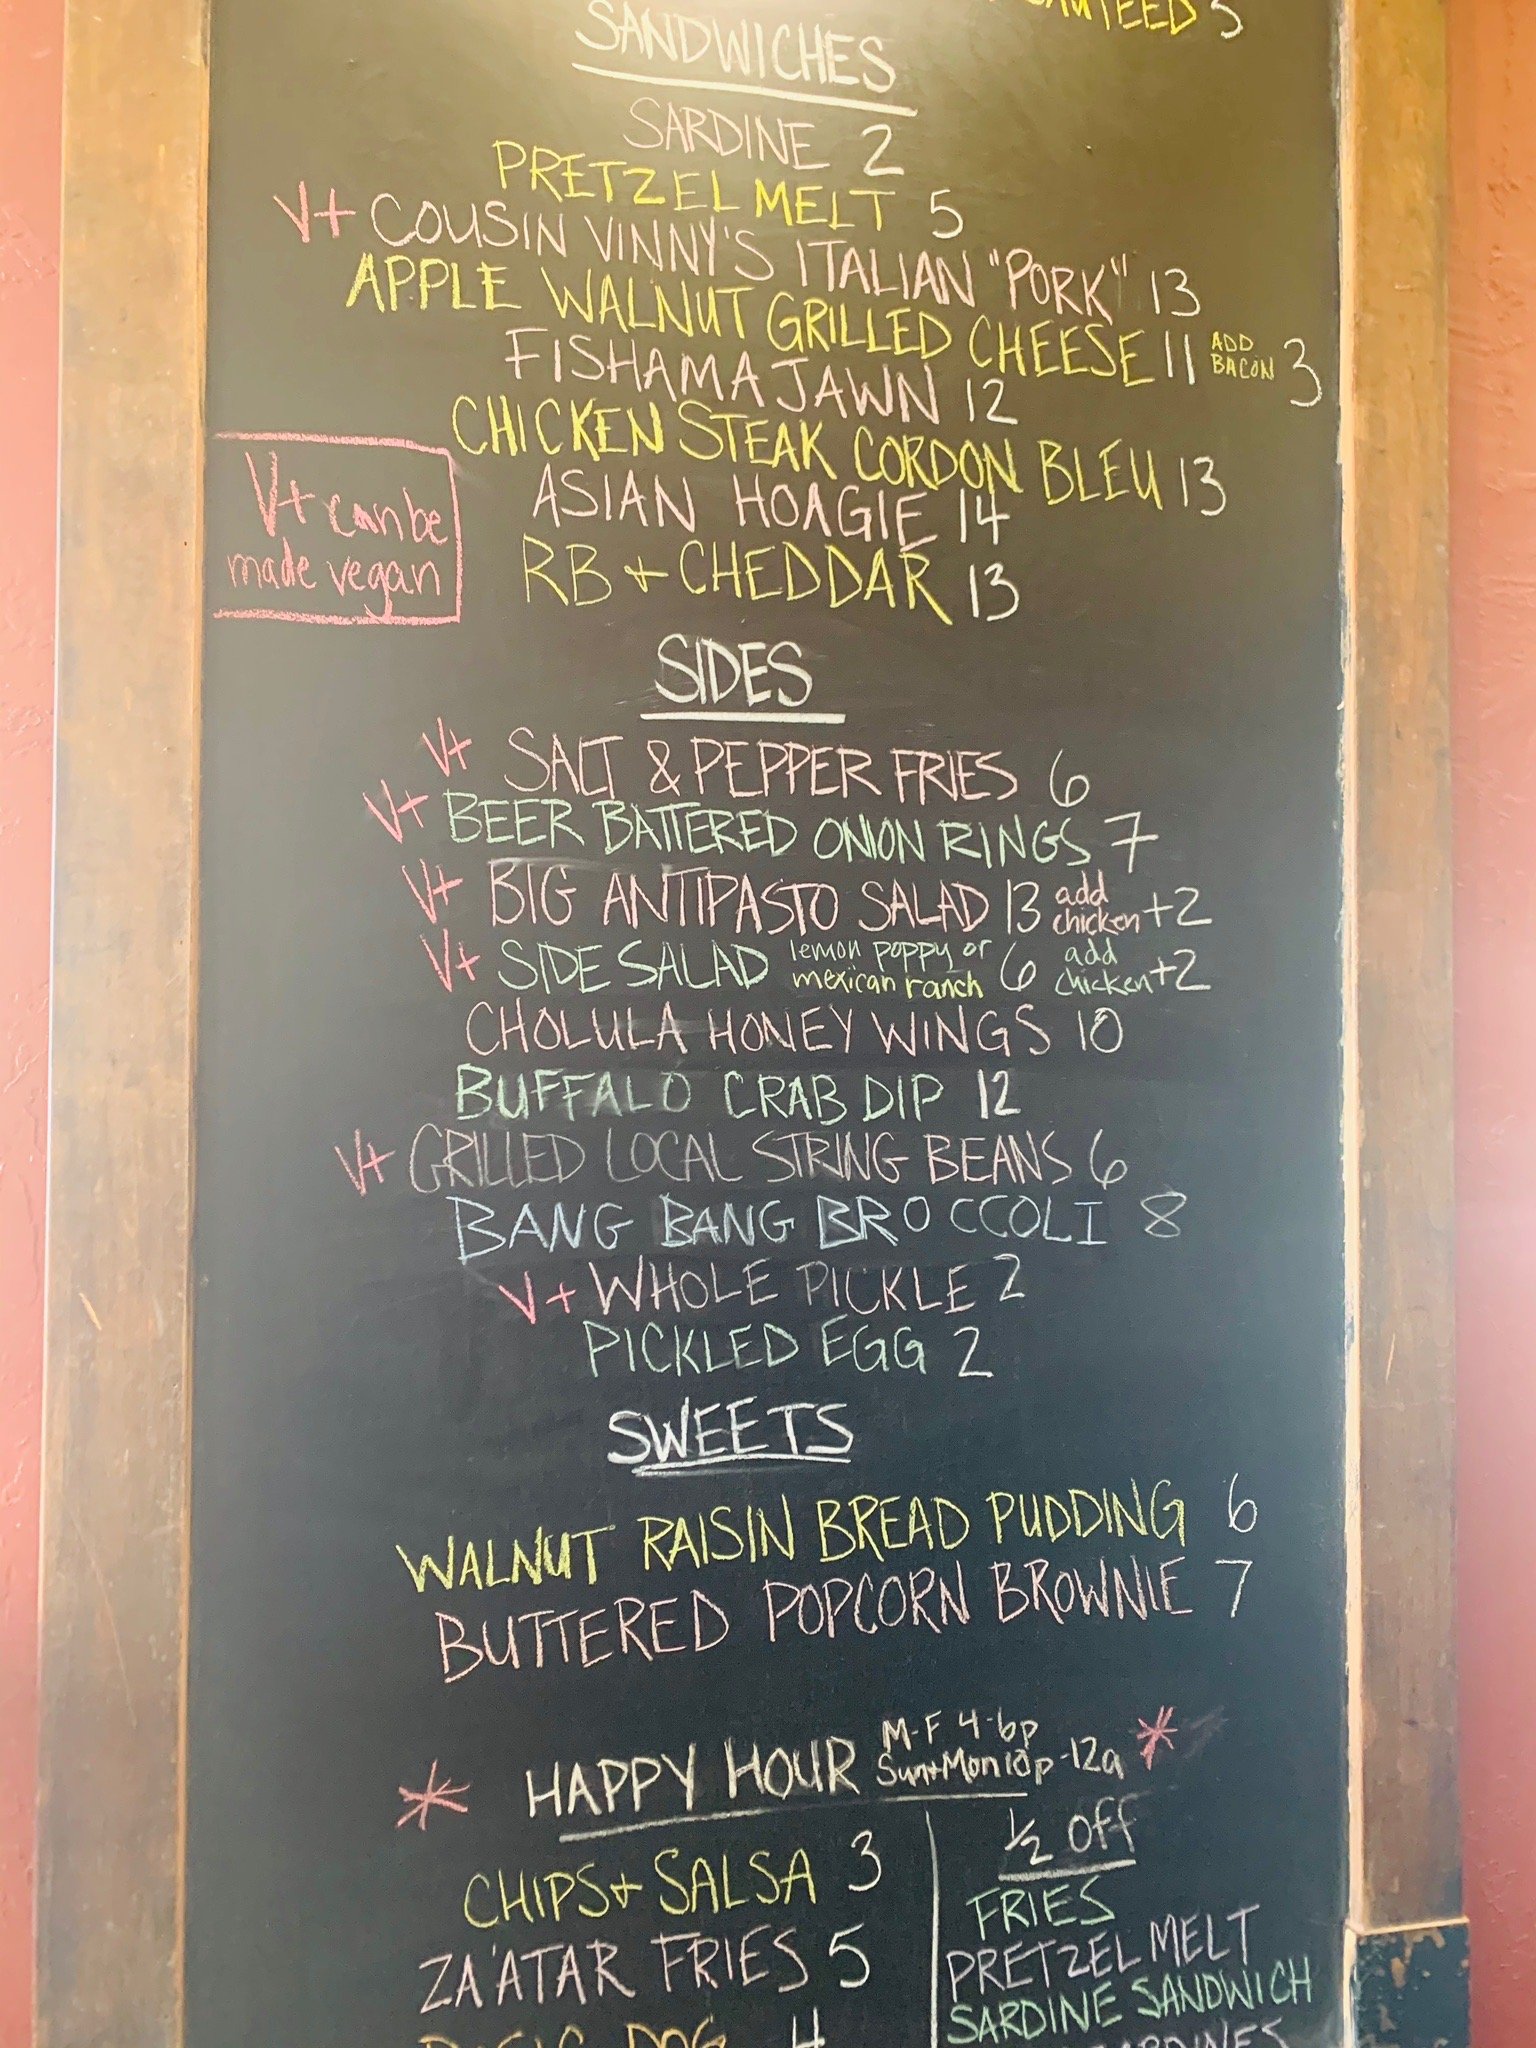 5
SANDWICHES
SARDINE 2
PRETZEL MELT 5
V+ COUSIN VINNY'S ITALIAN "PORK" 13
APPLE WALNUT GRILLED CHEESE 11 ADD BACON 3
FISHAMAJAWN 12
CHICKEN STEAK CORDON BLEU 13
ASIAN HOAGIE 14
RB + CHEDDAR 13
V+ can be
made vegan
SIDES
V+ SALT & PEPPER FRIES 6
V+ BEER BATTERED ONION RINGS 7
V+ BIG ANTIPASTO SALAD 13 add chicken +2
V+ SIDE SALAD lemon poppy or mexican ranch 6 add chicken +2
CHOLULA HONEY WINGS 10
BUFFALO CRAB DIP 12
V+ GRILLED LOCAL STRING BEANS 6
BANG BANG BROCCOLI 8
V+ WHOLE PICKLE 2
PICKLED EGG 2
SWEETS
WALNUT RAISIN BREAD PUDDING 6
BUTTERED POPCORN BROWNIE 7
* HAPPY HOUR M-F 4-6p *
Sun+Mon 10p-12a
CHIPS + SALSA 3
ZA'ATAR FRIES 5
DOG 4
1/2 Off
FRIES
PRETZEL MELT
SARDINE SANDWICH